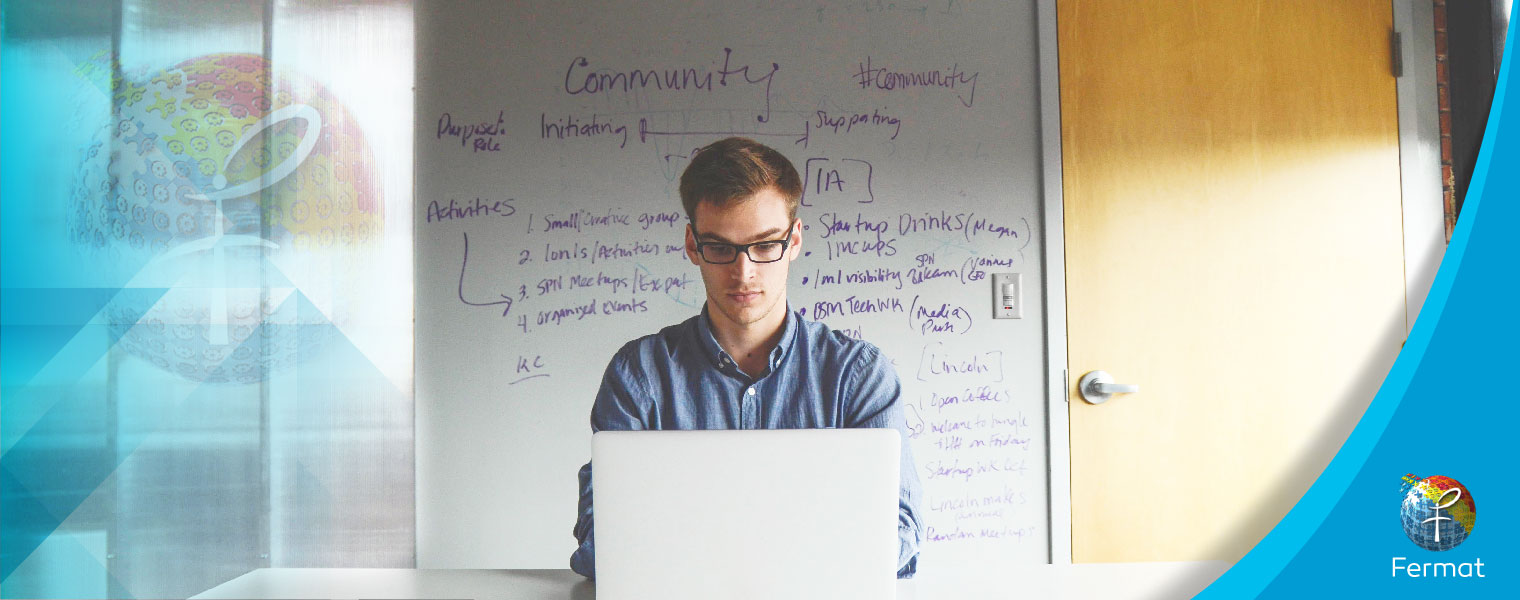 Community
#Community
Purpose:
Role
Initiating
Suppating
[IA]
Activities
1. Small/Creative group
2. Ionis/Activities
3. SPN Meetups/Expat
4. organized events
KC
• Startup Drinks (Megan)
• 1mcups
• /m/visibility
SPN
• BSM TechWK (Media
Push)
[Lincoln]
Open Coffees
Welcome to
on Friday
Startup WK
Lincoln makes
Random Meetups
Fermat